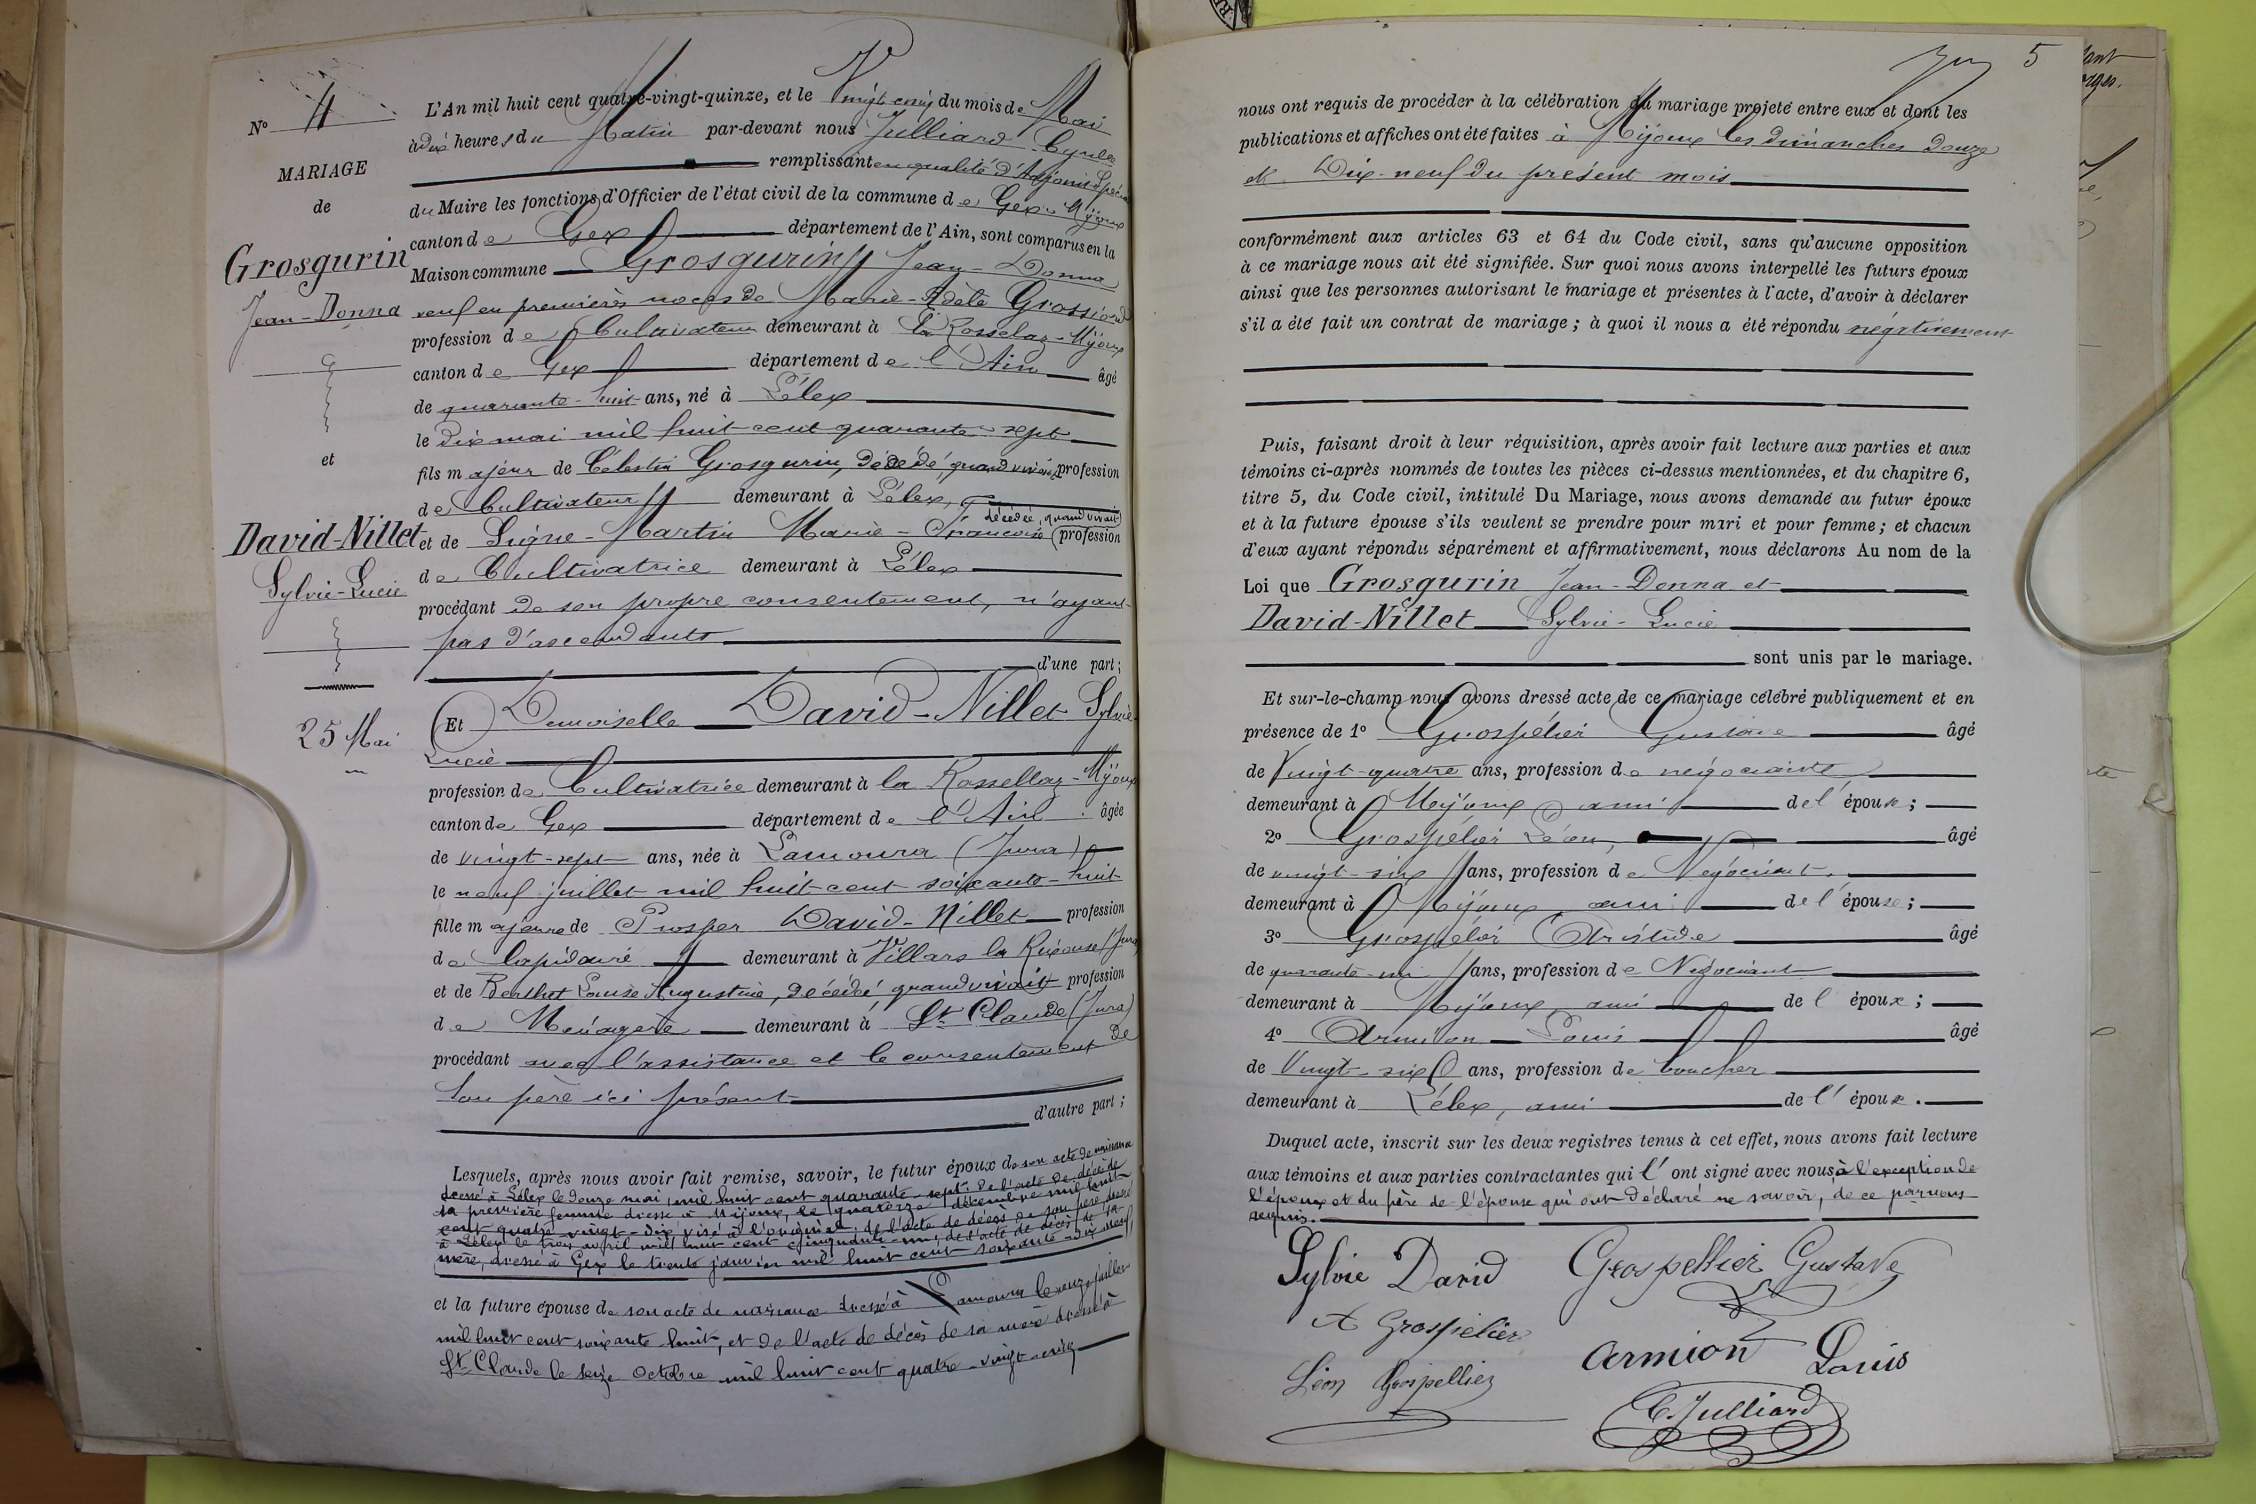 N° 4
MARIAGE
de
Grosgurin
Jean-Donna
et
David-Nillet
Sylvie-Lucie
25 Mai
L'An mil huit cent quatre-vingt-quinze, et le Vingt cinq du mois de Mai
à dix heures du Matin par-devant nous Julliard Cyrille
remplissant en qualité d'Adjoint Spécial
du Maire les fonctions d'Officier de l'état civil de la commune de Gex-Mijoux
canton de Gex département de l'Ain, sont comparus en la
Maison commune Grosgurin Jean-Donna
veuf en premières noces de Marie-Adèle Grossiord
profession de Cultivateur demeurant à la Rosselaz-Mijoux
canton de Gex département de l'Ain âgé
de quarante-huit ans, né à Lélex
le dix mai mil huit cent quarante-sept
fils majeur de Célestin Grosgurin, décédé, quand vivait, profession
de Cultivateur demeurant à Lélex,
et de Ligne-Martin Marie-Françoise (décédée, quand vivait) profession
de Cultivatrice demeurant à Lélex
procédant de son propre consentement, n'ayant
pas d'ascendants
d'une part;
Et Demoiselle David-Nillet Sylvie-
Lucie
profession de Cultivatrice demeurant à la Rossellaz-Mijoux
canton de Gex département de l'Ain âgée
de vingt-sept ans, née à Lamoura (Jura)
le neuf juillet mil huit cent soixante-huit
fille majeure de Prosper David-Nillet profession
de Lapidaire demeurant à Villars la Rixouse (Jura)
et de Berthet Louise Augustine, décédée, quand vivait profession
de Ménagère demeurant à St Claude (Jura)
procédant avec l'assistance et le consentement de
son père ici présent
d'autre part;
Lesquels, après nous avoir fait remise, savoir, le futur époux de son acte de naissance
dressé à Lélex le douze mai mil huit cent quarante-sept, de l'acte de décès de
sa première femme dressé à Mijoux, le quatorze décembre mil huit
cent quatre-vingt-dix visé à l'original, de l'acte de décès de son père dressé
à Lélex le trois avril mil huit cent cinquante-un, de l'acte de décès de sa
mère, dressé à Gex le trente janvier mil huit cent soixante-dix neuf,
et la future épouse de son acte de naissance dressé à Lamoura le onze juillet
mil huit cent soixante-huit, et de l'acte de décès de sa mère dressé à
St Claude le seize Octobre mil huit cent quatre-vingt-cinq
5
nous ont requis de procéder à la célébration du mariage projeté entre eux et dont les
publications et affiches ont été faites à Mijoux les dimanches douze
et Dix-neuf du présent mois
conformément aux articles 63 et 64 du Code civil, sans qu'aucune opposition
à ce mariage nous ait été signifiée. Sur quoi nous avons interpellé les futurs époux
ainsi que les personnes autorisant le mariage et présentes à l'acte, d'avoir à déclarer
s'il a été fait un contrat de mariage; à quoi il nous a été répondu négativement
Puis, faisant droit à leur réquisition, après avoir fait lecture aux parties et aux
témoins ci-après nommés de toutes les pièces ci-dessus mentionnées, et du chapitre 6,
titre 5, du Code civil, intitulé Du Mariage, nous avons demandé au futur époux
et à la future épouse s'ils veulent se prendre pour mari et pour femme; et chacun
d'eux ayant répondu séparément et affirmativement, nous déclarons Au nom de la
Loi que Grosgurin Jean-Donna et
David-Nillet Sylvie-Lucie
sont unis par le mariage.
Et sur-le-champ nous avons dressé acte de ce mariage célébré publiquement et en
présence de 1° Grospélier Gustave âgé
de Vingt-quatre ans, profession de négociant
demeurant à Mijoux ami de l'époux;
2° Grospélier Léon, âgé
de vingt-six ans, profession de Négociant
demeurant à Mijoux ami de l'épouse;
3° Grospélier Aristide âgé
de quarante-un ans, profession de Négociant
demeurant à Mijoux, ami de l'époux;
4° Armion Louis âgé
de Vingt-six ans, profession de boucher
demeurant à Lélex, ami de l'époux.
Duquel acte, inscrit sur les deux registres tenus à cet effet, nous avons fait lecture
aux témoins et aux parties contractantes qui l'ont signé avec nous, à l'exception de
l'époux et du père de l'épouse qui ont déclaré ne savoir, de ce par nous
requis.
Sylvie David Grospellier Gustave
A Grospelier
Armion Louis
Léon Grospellier
C. Julliard